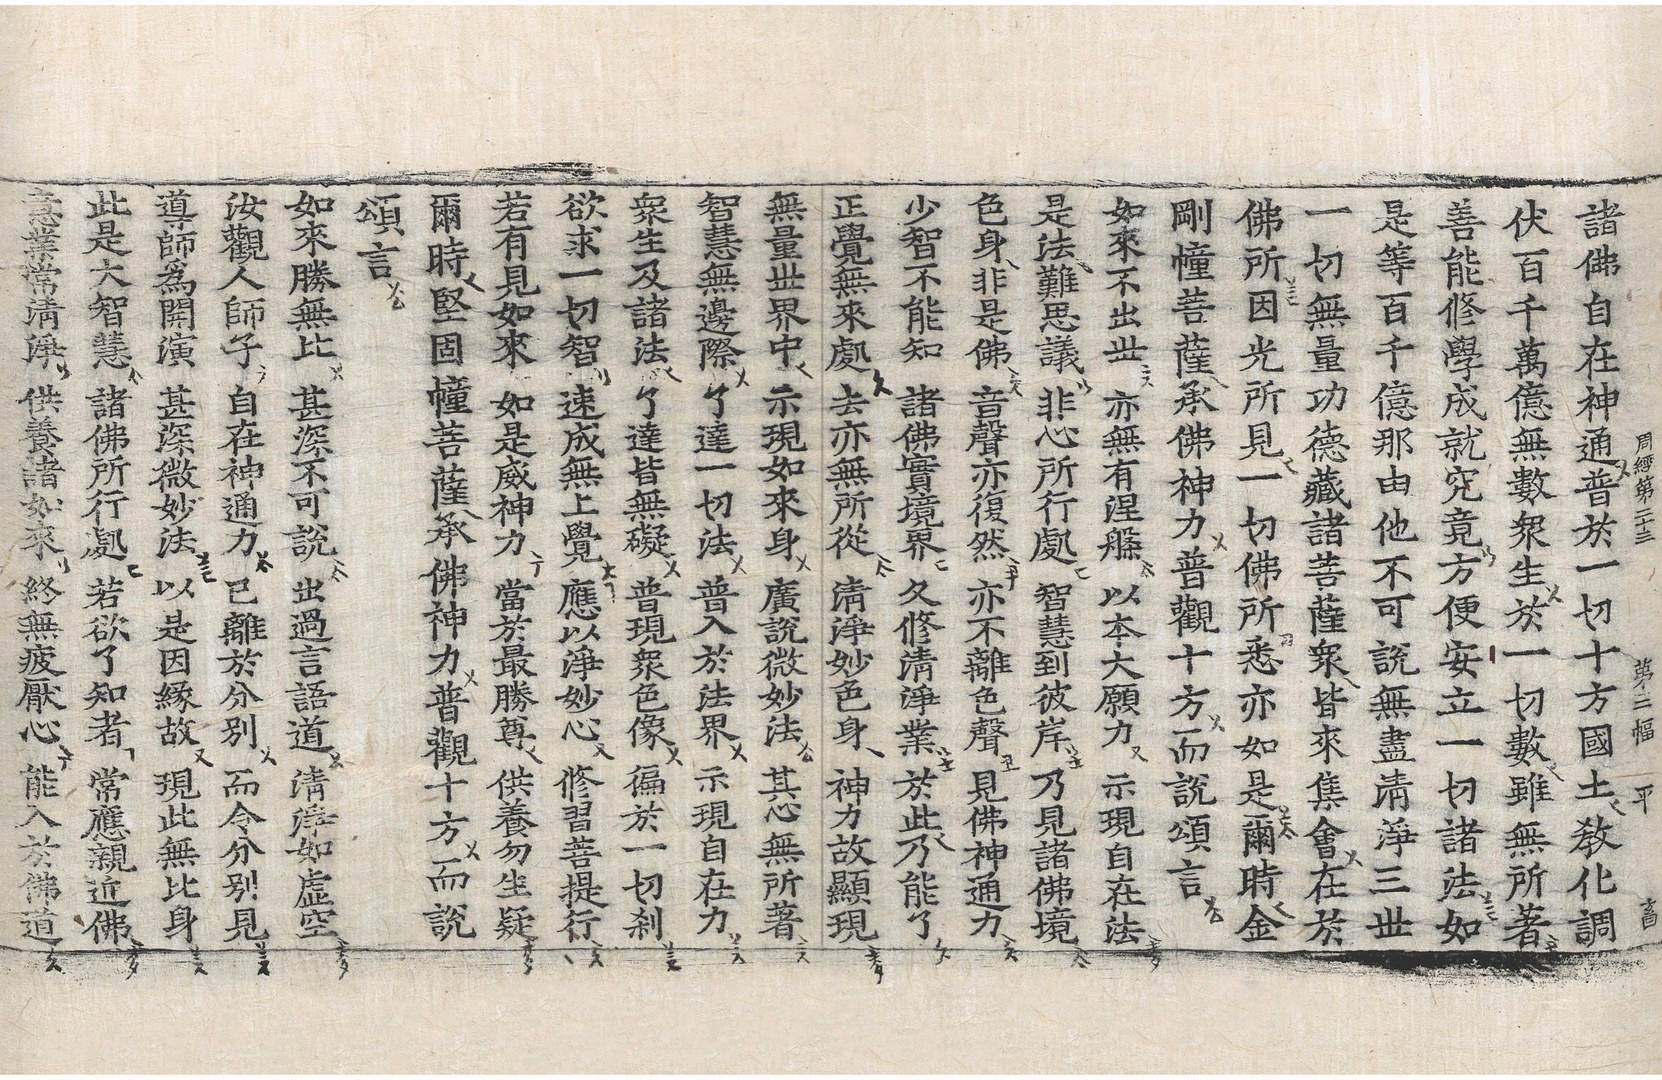 周經第二十三 第三幅 平
諸佛自在神通普於一切十方國土教化調
伏百千萬億無數衆生於一切數雖無所著
善能修學成就究竟方便安立一切諸法如
是等百千億那由他不可說無盡清淨三世
一切無量功德藏諸菩薩衆皆來集會在於
佛所因光所見一切佛所悉亦如是爾時金
剛幢菩薩承佛神力普觀十方而說頌言
如來不出世 亦無有涅槃 以本大願力 示現自在法
是法難思議 非心所行處 智慧到彼岸 乃見諸佛境
色身非是佛 音聲亦復然 亦不離色聲 見佛神通力
少智不能知 諸佛實境界 久修清淨業 於此乃能了
正覺無來處 去亦無所從 清淨妙色身 神力故顯現
無量世界中 示現如來身 廣說微妙法 其心無所著
智慧無邊際 了達一切法 普入於法界 示現自在力
衆生及諸法 了達皆無礙 普現衆色像 徧於一切刹
欲求一切智 速成無上覺 應以淨妙心 修習菩提行
若有見如來 如是威神力 當於最勝尊 供養勿生疑
爾時堅固幢菩薩承佛神力普觀十方而說
頌言
如來勝無比 甚深不可說 出過言語道 清淨如虛空
汝觀人師子 自在神通力 已離於分別 而令分別見
導師爲開演 甚深微妙法 以是因緣故 現此無比身
此是大智慧 諸佛所行處 若欲了知者 常應親近佛
意業常清淨 供養諸如來 終無疲厭心 能入於佛道